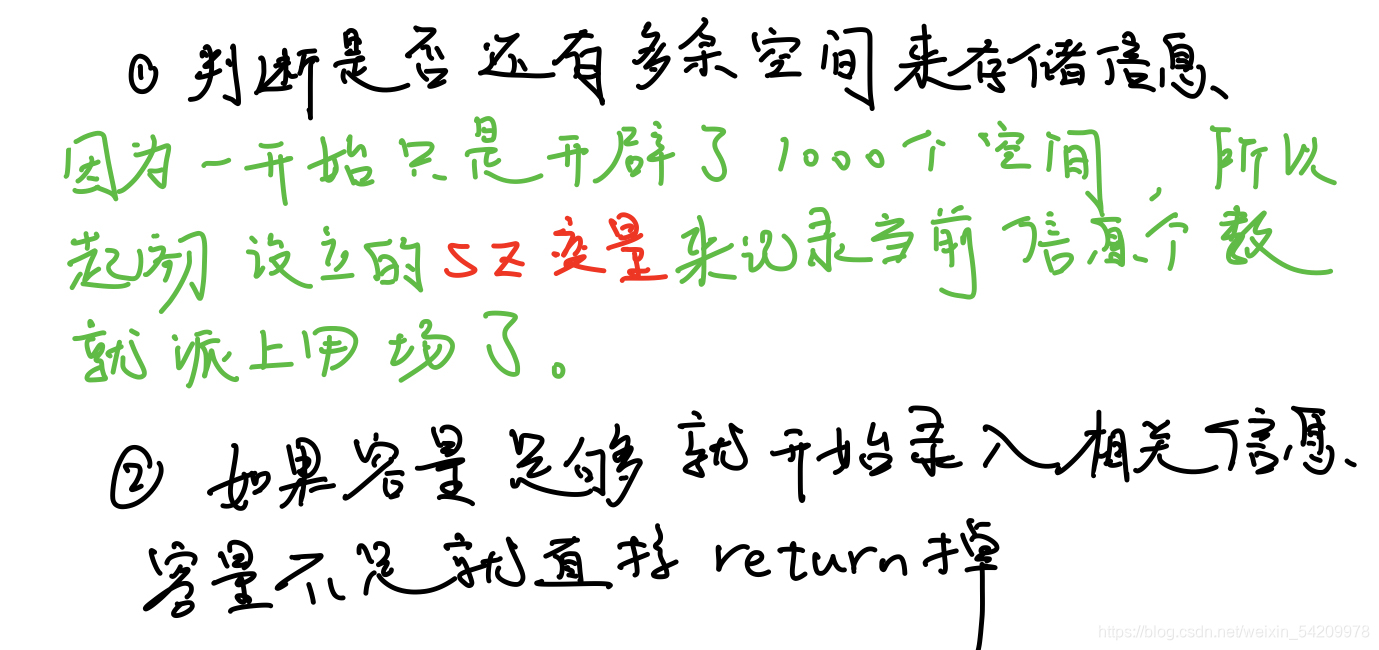 ① 判断是否还有多余空间来存储信息、
因为一开始只是开辟了1000个空间,所以
起初设立的sz变量来记录当前信息个数
就派上用场了。
② 如果容量足够就开始录入相关信息、
容量不足就直接return掉
https://blog.csdn.net/weixin_54209978